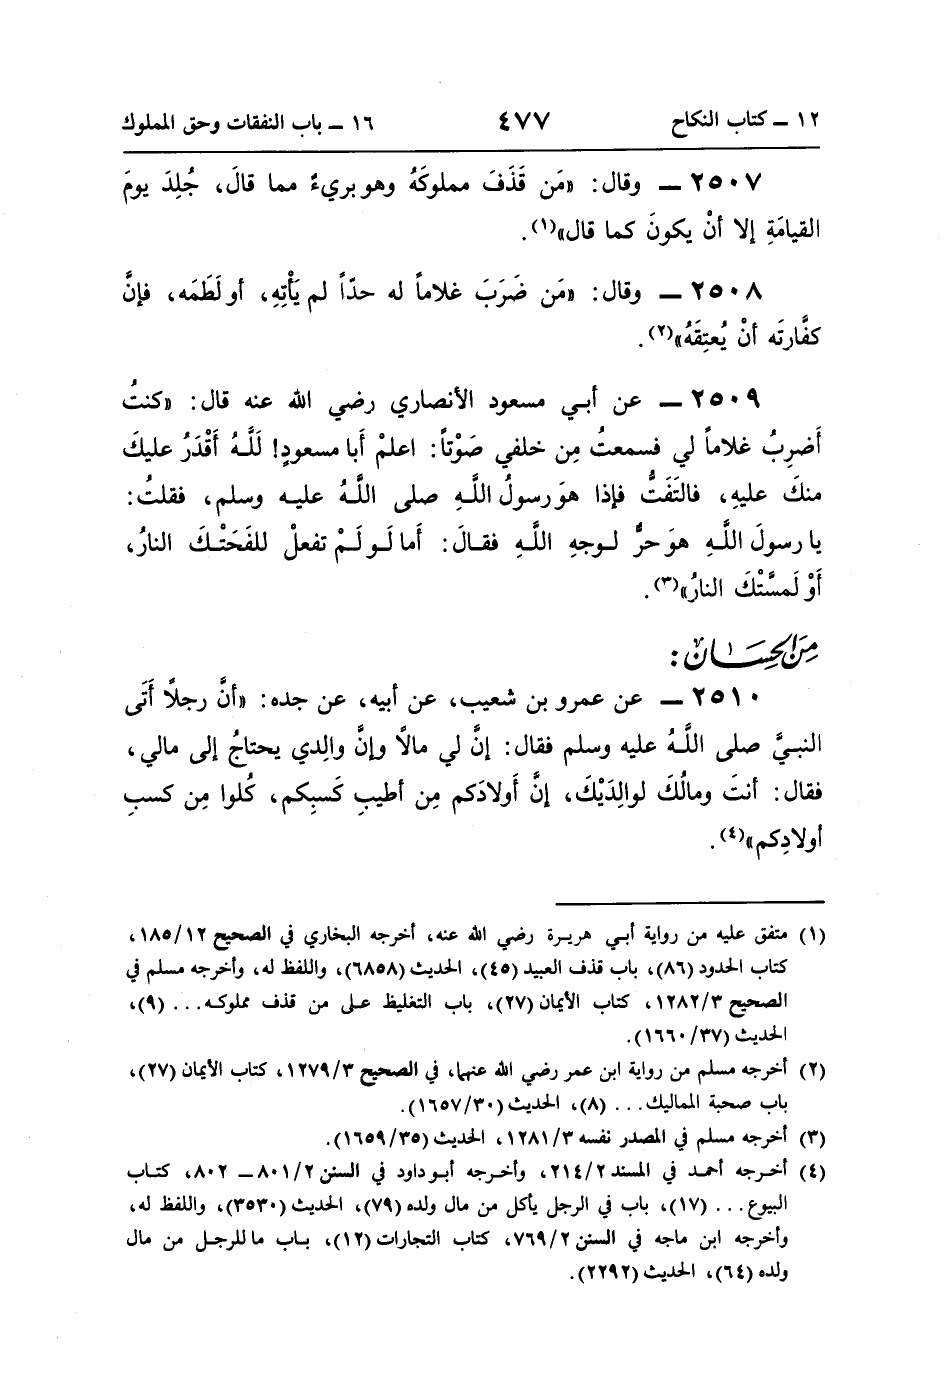 ١٢ ــ كتاب النكاح ٤٧٧ ١٦ ــ باب النفقات وحق المملوك
٢٥٠٧ ــ وقال: «مَن قَذَفَ مملوكَهُ وهو بريءٌ مما قالَ، جُلِدَ يومَ
القيامَةِ إلا أنْ يكونَ كما قال»(١).
٢٥٠٨ ــ وقال: «مَن ضَرَبَ غلاماً له حدّاً لم يَأْتِهِ، أو لَطَمَه، فإنَّ
كفَّارتَه أنْ يُعتِقَهُ»(٢).
٢٥٠٩ ــ عن أبي مسعود الأنصاري رضي الله عنه قال: «كنتُ
أَضرِبُ غلاماً لي فسمعتُ مِن خلفي صَوْتاً: اعلمْ أَبا مسعودٍ! لَلَّهُ أَقْدَرُ عليكَ
منكَ عليهِ، فالتَفَتُّ فإذا هوَ رسولُ اللَّهِ صلى اللَّهُ عليه وسلم، فقلتُ:
يا رسولَ اللَّهِ هوَ حرٌّ لوجهِ اللَّهِ فقالَ: أَما لَو لَمْ تفعلْ للفَحَتْكَ النارُ،
أَوْ لَمسَّتْكَ النارُ»(٣).
مِنَ الحِسَانْ:
٢٥١٠ ــ عن عمرو بن شعيب، عن أبيه، عن جده: «أنَّ رجلاً أَتَى
النبيَّ صلى اللَّهُ عليه وسلم فقال: إنَّ لي مالاً وإنَّ والِدي يحتاجُ إلى مالي،
فقال: أنتَ ومالُكَ لوالِدَيْكَ، إنَّ أَولادَكم مِن أطيبِ كَسبِكم، كُلوا مِن كسبِ
أولادِكم»(٤).
(١) متفق عليه من رواية أبي هريرة رضي الله عنه، أخرجه البخاري في الصحيح ١٨٥/١٢،
كتاب الحدود (٨٦)، باب قذف العبيد (٤٥)، الحديث (٦٨٥٨)، واللفظ له، وأخرجه مسلم في
الصحيح ١٢٨٢/٣، كتاب الأيمان (٢٧)، باب التغليظ على من قذف مملوكه... (٩)،
الحديث (١٦٦٠/٣٧).
(٢) أخرجه مسلم من رواية ابن عمر رضي الله عنهما، في الصحيح ١٢٧٩/٣، كتاب الأيمان (٢٧)،
باب صحبة المماليك... (٨)، الحديث (١٦٥٧/٣٠).
(٣) أخرجه مسلم في المصدر نفسه ١٢٨١/٣، الحديث (١٦٥٩/٣٥).
(٤) أخرجه أحمد في المسند ٢١٤/٢، وأخرجه أبو داود في السنن ٨٠١/٢ ــ ٨٠٢، كتاب
البيوع... (١٧)، باب في الرجل يأكل من مال ولده (٧٩)، الحديث (٣٥٣٠)، واللفظ له،
وأخرجه ابن ماجه في السنن ٧٦٩/٢، كتاب التجارات (١٢)، باب ما للرجل من مال
ولده (٦٤)، الحديث (٢٢٩٢).